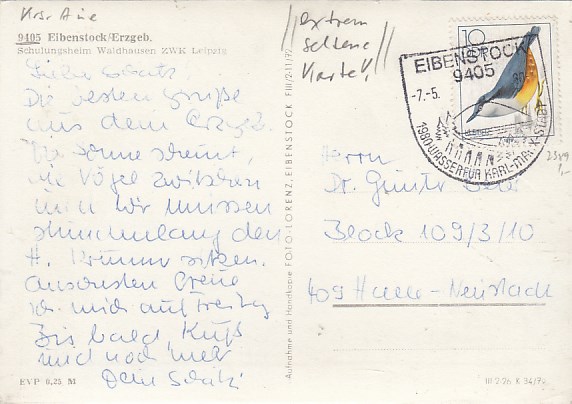 Krs. Aue
9405 Eibenstock/Erzgeb.
Schulungsheim Waldhausen ZWK Leipzig
//extrem
seltene
Karte!//
Die besten Grüße
aus dem Erzgeb.
Die Sonne scheint
die Vögel zwitschern
und wir müssen
stundenlang den
H. Krumm sitzen.
Ansonsten freue
ich mich auf Freitag
Bis bald, Kuß
und noch mehr
Dein Schatzi
EVP 0,25 M
Aufnahme und Handkopie FOTO-LORENZ, EIBENSTOCK FIII/2-11/72
10
DDR
EIBENSTOCK
9405
-7.-5. 80
1980·WASSER FÜR KARL-MARX-STADT
Herrn
Dr. Günter
Block 109/3/10
409 Halle-Neustadt
III/2/26 K 34/72